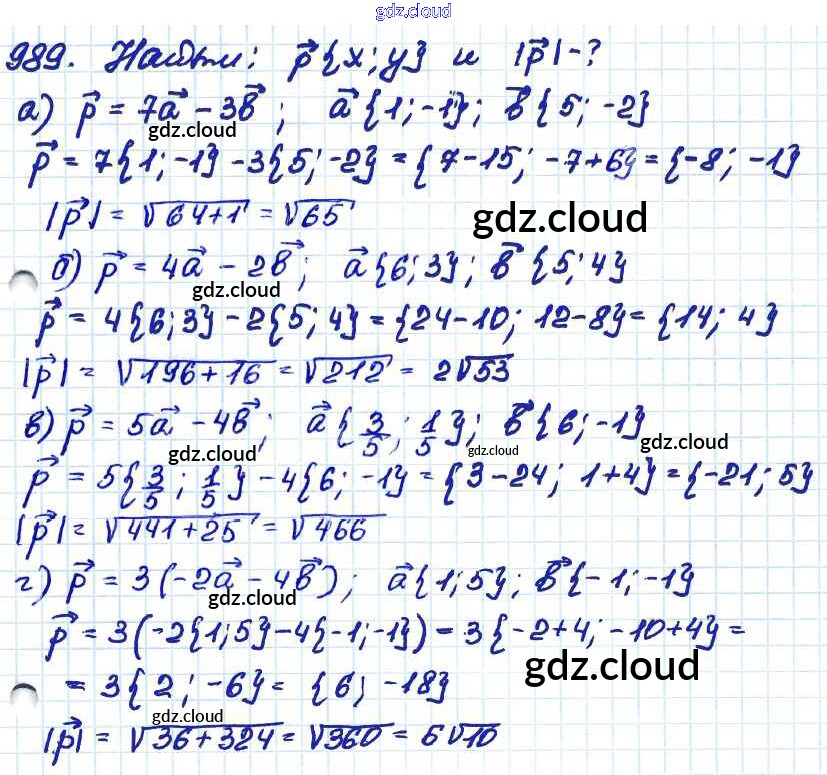 gdz.cloud
989. Найти: p⃗{x; y} и |p⃗| - ?
а) p⃗ = 7a⃗ - 3b⃗; a⃗{1; -1}; b⃗{5; -2}
gdz.cloud
p⃗ = 7{1; -1} - 3{5; -2} = {7-15; -7+6} = {-8; -1}
|p⃗| = √64+1 = √65
gdz.cloud
б) p⃗ = 4a⃗ - 2b⃗; a⃗{6; 3}; b⃗{5; 4}
gdz.cloud
p⃗ = 4{6; 3} - 2{5; 4} = {24-10; 12-8} = {14; 4}
|p⃗| = √196+16 = √212 = 2√53
в) p⃗ = 5a⃗ - 4b⃗; a⃗{3/5; 1/5}; b⃗{6; -1}
gdz.cloud gdz.cloud gdz.cloud
p⃗ = 5{3/5; 1/5} - 4{6; -1} = {3-24; 1+4} = {-21; 5}
|p⃗| = √441+25 = √466
г) p⃗ = 3(-2a⃗ - 4b⃗); a⃗{1; 5}; b⃗{-1; -1}
gdz.cloud
p⃗ = 3(-2{1; 5} - 4{-1; -1}) = 3{-2+4; -10+4} =
gdz.cloud
= 3{2; -6} = {6; -18}
gdz.cloud
|p⃗| = √36+324 = √360 = 6√10